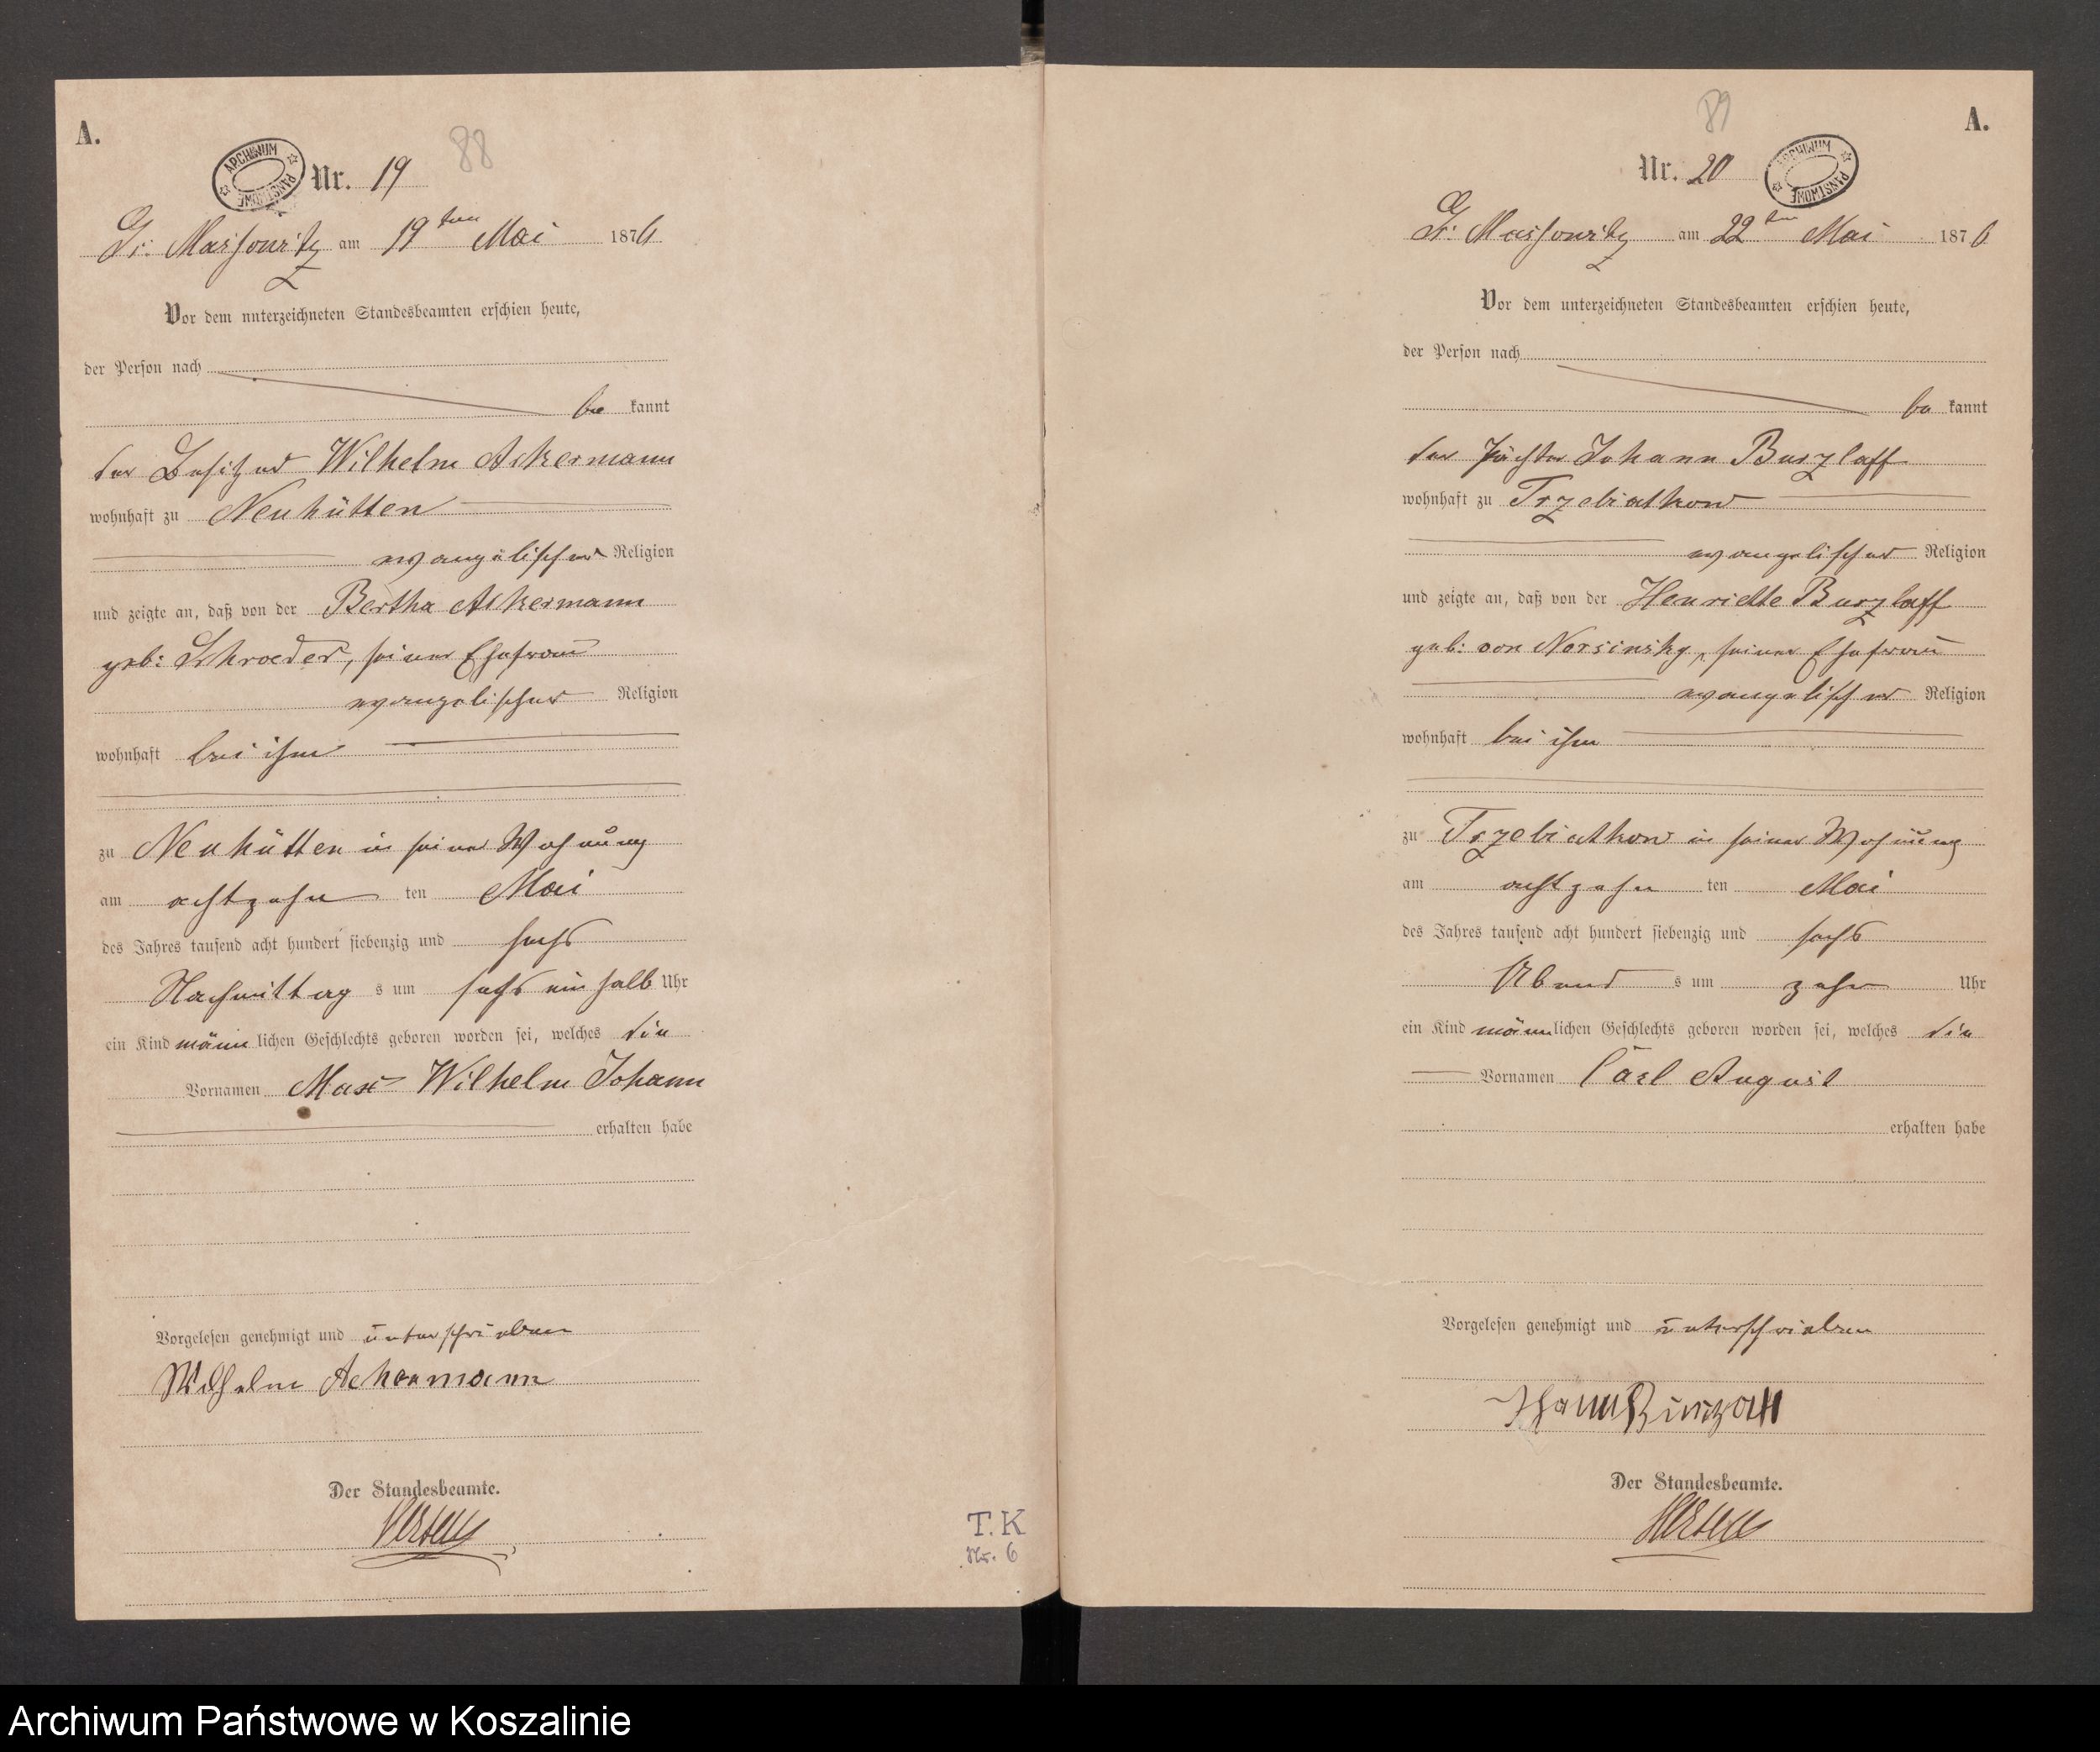 A.
88
ARCHIWUM PAŃSTWOWE
Nr. 19
Gr: Massowitz am 19ten Mai 1876
Vor dem unterzeichneten Standesbeamten erschien heute,
der Person nach
be kannt
der Besitzer Wilhelm Ackermann
wohnhaft zu Neuhütten
evangelischer Religion
und zeigte an, daß von der Bertha Ackermann
geb: Schroeder, seiner Ehefrau
evangelischer Religion
wohnhaft bei ihm
zu Neuhütten in seiner Wohnung
am achtzehn ten Mai
des Jahres tausend acht hundert siebenzig und sechs
Nachmittag s um sechs ein halb Uhr
ein Kind männlichen Geschlechts geboren worden sei, welches die
Vornamen Max Wilhelm Johann
erhalten habe
Vorgelesen genehmigt und unterschrieben
Wilhelm Ackermann
Der Standesbeamte.
T.K
Nr. 6
89
A.
Nr. 20
ARCHIWUM PAŃSTWOWE
Gr: Massowitz am 22ten Mai 1876
Vor dem unterzeichneten Standesbeamten erschien heute,
der Person nach
be kannt
der Pächter Johann Burzlaff
wohnhaft zu Trzebiatkow
evangelischer Religion
und zeigte an, daß von der Henriette Burzlaff
geb: von seiner Ehefrau
evangelischer Religion
wohnhaft bei ihm
zu Trzebiatkow in seiner Wohnung
am achtzehn ten Mai
des Jahres tausend acht hundert siebenzig und sechs
Abend s um zehn Uhr
ein Kind männlichen Geschlechts geboren worden sei, welches die
Vornamen Carl August
erhalten habe
Vorgelesen genehmigt und unterschrieben
Der Standesbeamte.
Archiwum Państwowe w Koszalinie